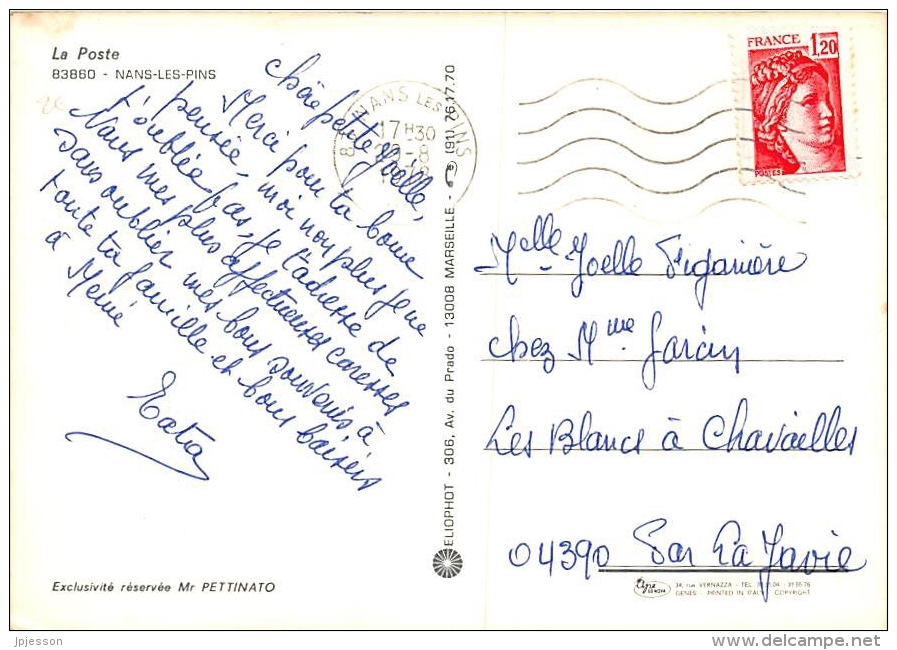 La Poste
83860 - NANS-LES-PINS
Chère petite Joëlle,
Merci pour ta bonne
pensée, moi non plus je ne
t'oublie pas, je t'adresse de
Nans mes plus affectueuses caresses
sans oublier mes bons souvenirs à
toute ta famille et bons baisers
à Mémé
Tatra
Exclusivité réservée Mr PETTINATO
ELIOPHOT - 306, Av. du Prado - 13008 MARSEILLE - (91) 76.17.70
NANS LES PINS
17H30
-8
FRANCE 1,20
POSTES
Melle Joelle
chez Mme Garcin
Les Blancs à Chavailles
04390 Par La Javie
34, rue VERNAZZA - TEL
GENES - PRINTED IN ITALY - COPYRIGHT
jpjesson
delcampe.net